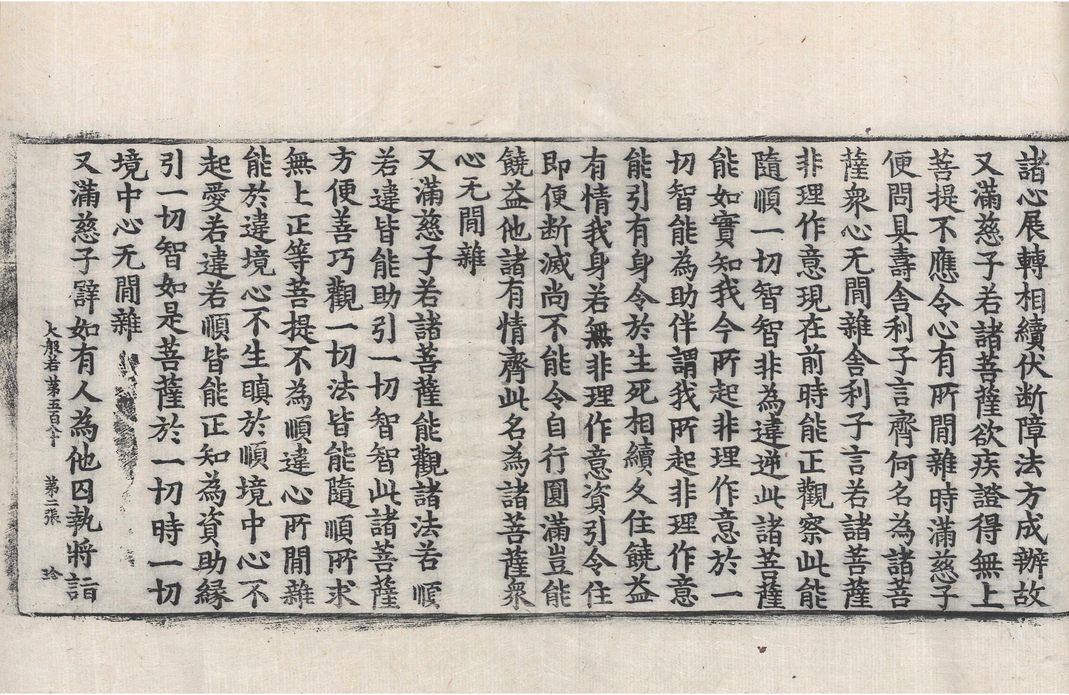 諸心展轉相續伏断障法方成辦故
又滿慈子若諸菩薩欲疾證得無上
菩提不應令心有所閒雜時滿慈子
便問具壽舍利子言齊何名為諸菩
薩衆心无閒雜舍利子言若諸菩薩
非理作意現在前時能正觀察此能
隨順一切智智非為違逆此諸菩薩
能如實知我今所起非理作意於一
切智智能為助伴謂我所起非理作意
能引有身令於生死相續久住饒益
有情我身若無非理作意資引令住
即便断滅尚不能令自行圓滿豈能
饒益他諸有情齊此名為諸菩薩衆
心无閒雜
又滿慈子若諸菩薩能觀諸法若順
若違皆能助引一切智智此諸菩薩
方便善巧觀一切法皆能隨順所求
無上正等菩提不為順違心所閒雜
能於違境心不生瞋於順境中心不
起愛若違若順皆能正知為資助縁
引一切智如是菩薩於一切時一切
境中心无閒雜
大般若第五百八十 第二張 玪
又滿慈子譬如有人為他囚執將詣